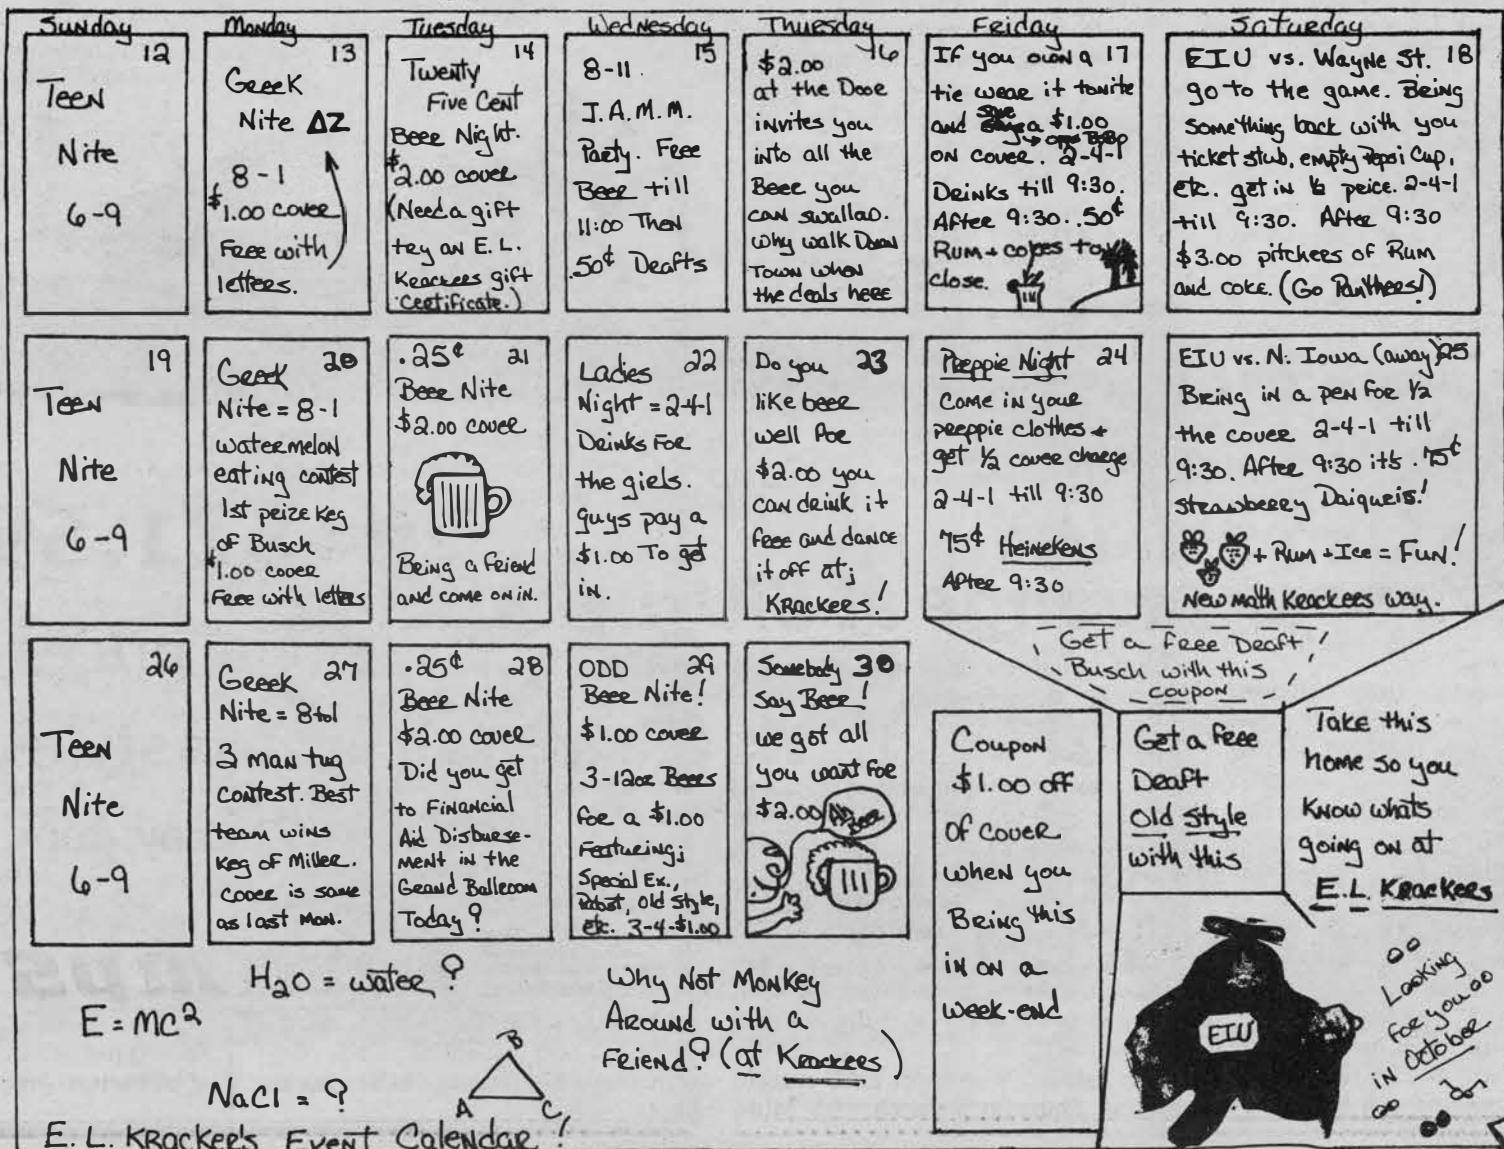 Sunday Monday Tuesday Wednesday Thursday Friday Saturday
12
Teen
Nite
6-9
13
Greek
Nite ΔZ
8-1
$1.00 cover
Free with
letters.
14
Twenty
Five Cent
Beer Night.
$2.00 cover
(Need a gift
try an E.L.
Krackers gift
Certificate.)
15
8-11
J.A.M.M.
Party. Free
Beer till
11:00 Then
.50¢ Drafts
16
$2.00
at the Door
invites you
into all the
Beer you
can swallow.
Why walk Down
Town when
the deals here
If you own a 17
tie wear it tonite
and save a $1.00
on cover. 2-4-1
Drinks till 9:30.
After 9:30..50¢
Rum + cokes to
close.
EIU vs. Wayne St. 18
go to the game. Bring
something back with you
ticket stub, empty Pepsi Cup,
etc. get in ½ price. 2-4-1
till 9:30. After 9:30
$3.00 pitchers of Rum
and coke. (Go Panthers!)
19
Teen
Nite
6-9
Greek 20
Nite = 8-1
watermelon
eating contest
1st prize Keg
of Busch
$1.00 cover
Free with letters
.25¢ 21
Beer Nite
$2.00 cover
Bring a friend
and come on in.
Ladies 22
Night = 2-4-1
Drinks For
the girls.
guys pay a
$1.00 To get
in.
Do you 23
like beer
well For
$2.00 you
can drink it
free and dance
it off at;
Krackers!
Preppie Night 24
Come in your
preppie clothes +
get ½ cover charge
2-4-1 till 9:30
75¢ Heinekens
After 9:30
EIU vs. N. Iowa (away) 25
Bring in a pen for ½
the cover 2-4-1 till
9:30. After 9:30 it's .75¢
strawberry Daiquiris!
+ Rum + Ice = Fun!
New math Krackers way.
26
Teen
Nite
6-9
Greek 27
Nite = 8 to 1
3 man tug
contest. Best
team wins
Keg of Miller.
cover is same
as last Mon.
.25¢ 28
Beer Nite
$2.00 cover
Did you get
to Financial
Aid Disburse-
ment in the
Grand Ballroom
Today?
ODD 29
Beer Nite!
$1.00 cover
3-12oz Beers
for a $1.00
Featuring;
Special Ex.,
Pabst, Old Style,
etc. 3-4-$1.00
Somebody 30
say Beer!
we got all
you want for
$2.00
Beer
Get a free Draft
Busch with this!
coupon
Coupon
$1.00 off
of cover
when you
Bring this
in on a
week-end
Get a free
Draft
Old Style
with this
Take this
home so you
know whats
going on at
E.L. Krackers
EIU
Looking
for you
in October
H₂O = water?
E = mc²
NaCl = ?
A B C
Why Not Monkey
Around with a
Friend? (at Krackers)
E.L. Kracker's Event Calendar!